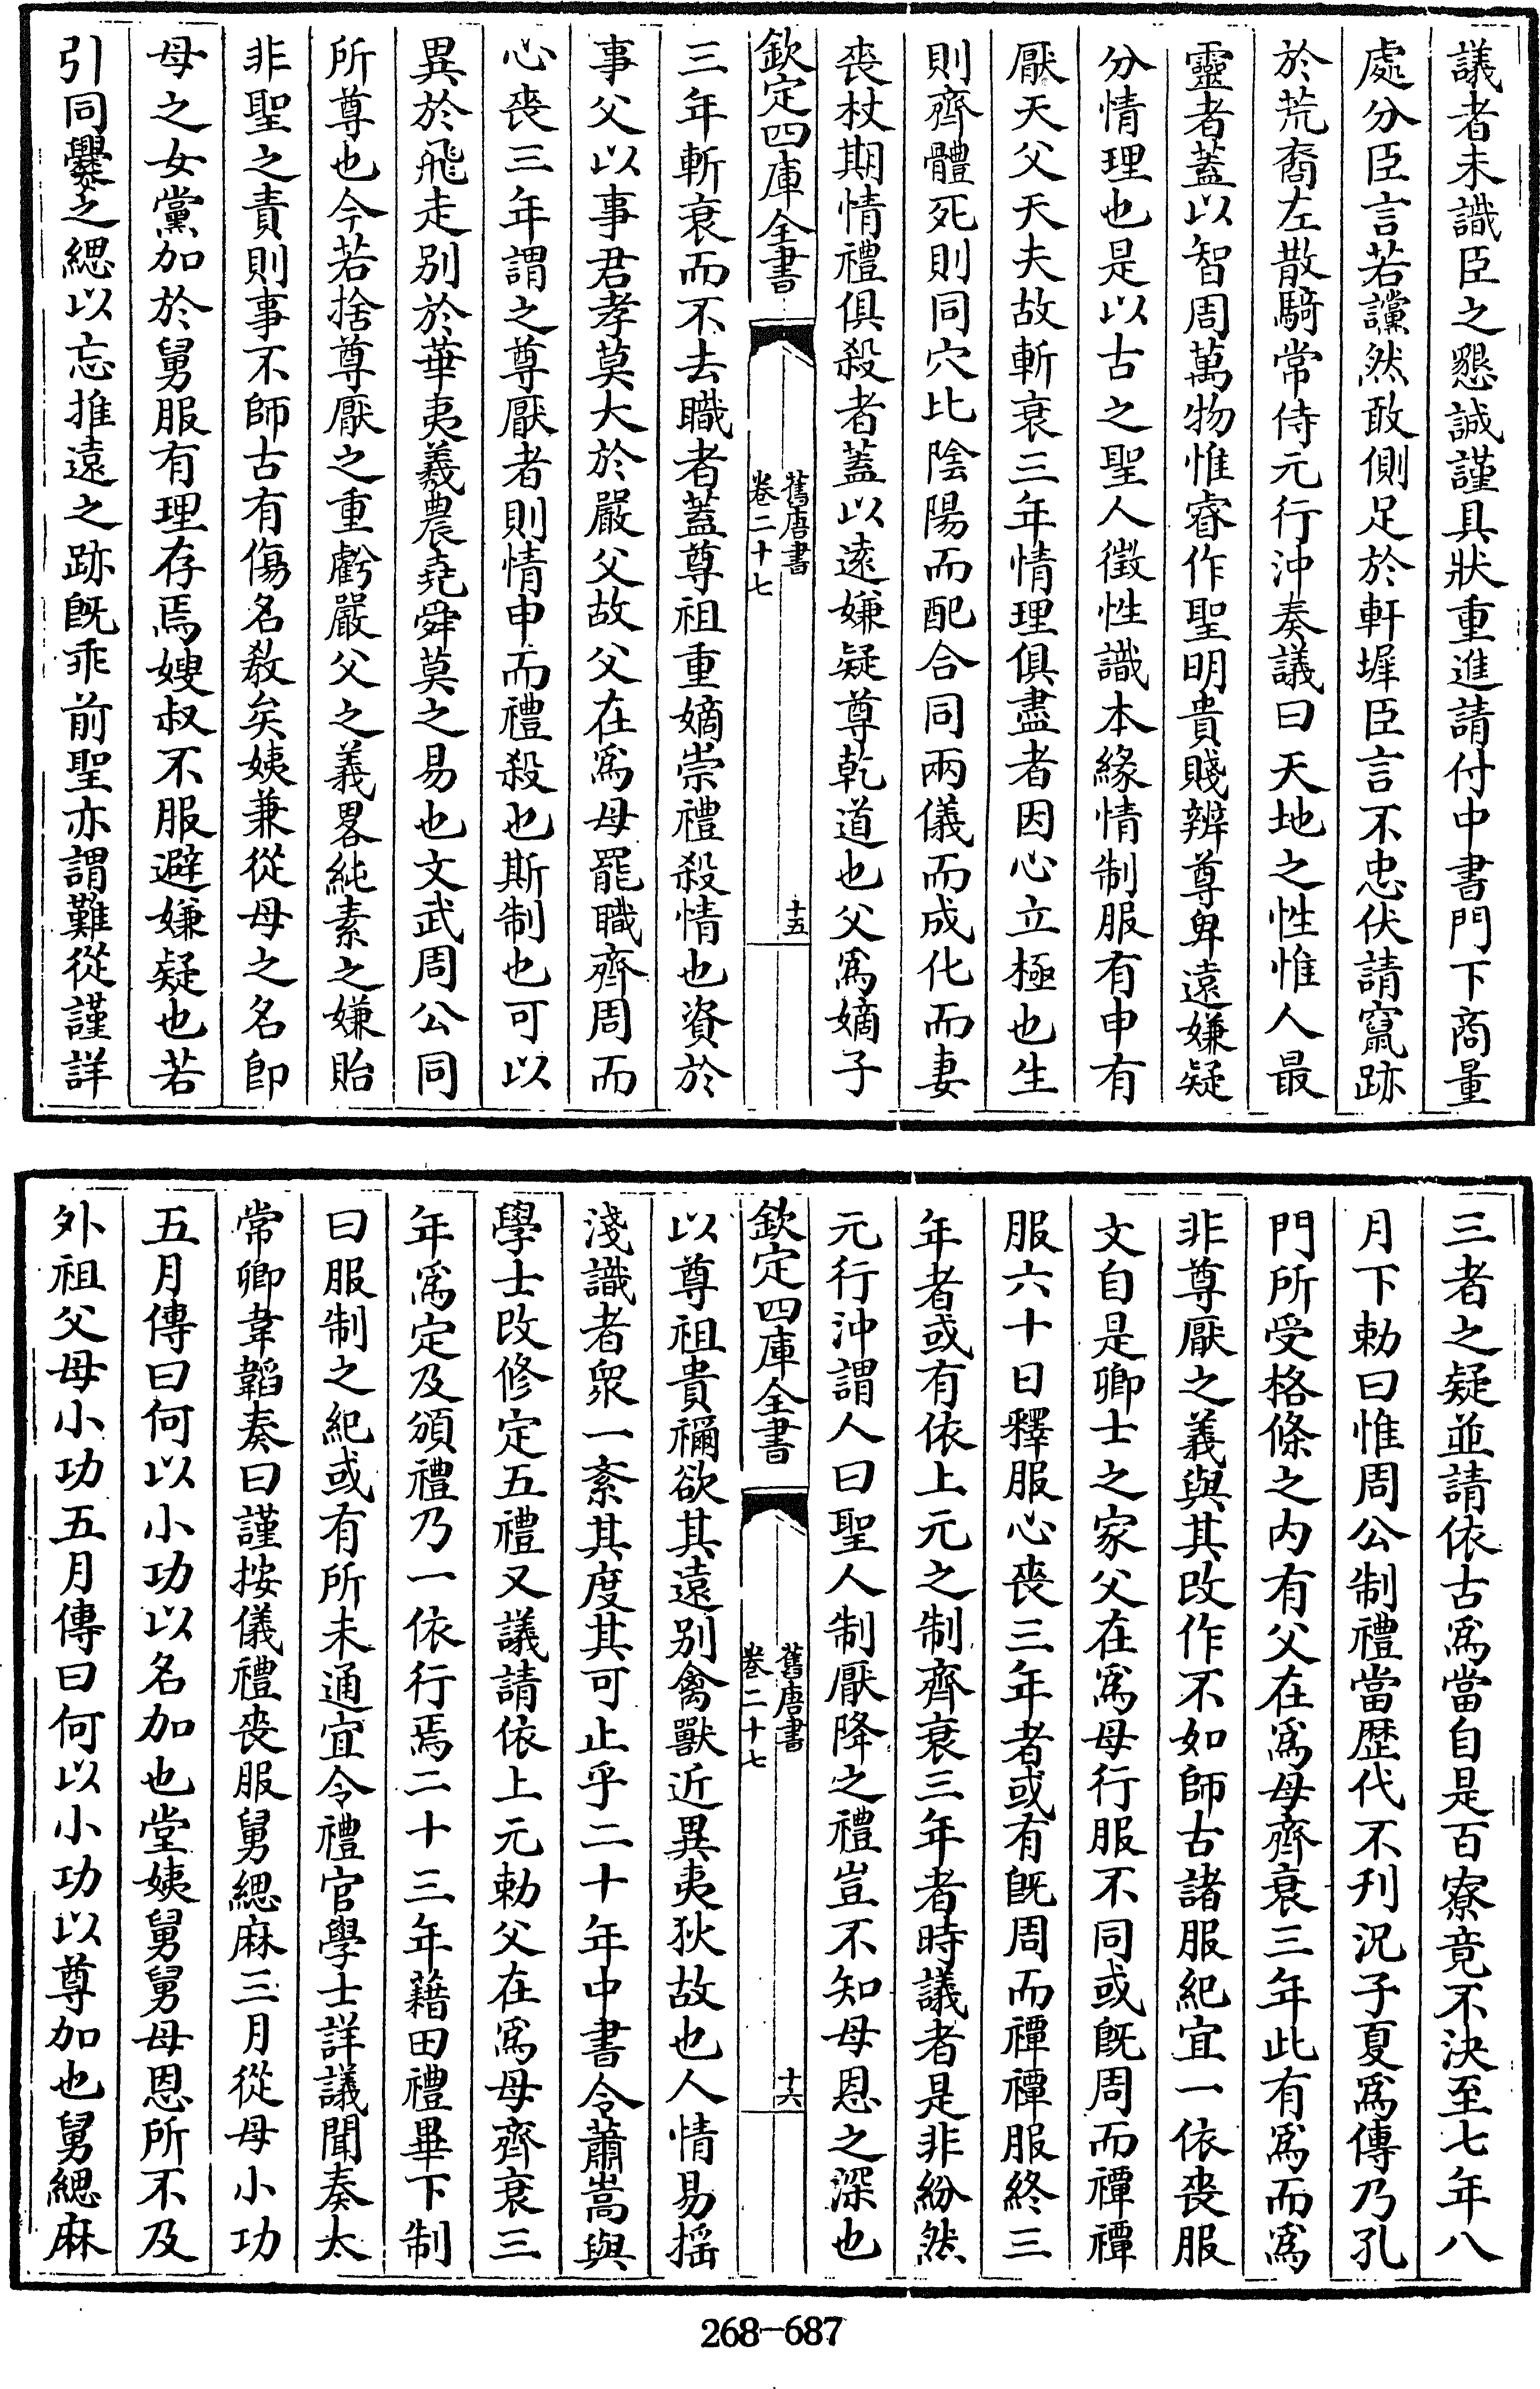 議者未識臣之懇誠謹具狀重進請付中書門下商量
處分臣言若讜然敢側足於軒墀臣言不忠伏請竄跡
於荒裔左散騎常侍元行沖奏議曰天地之性惟人最
靈者蓋以智周萬物惟睿作聖明貴賤辨尊卑遠嫌疑
分情理也是以古之聖人徵性識本緣情制服有申有
厭天父天夫故斬衰三年情理俱盡者因心立極也生
則齊體死則同穴比陰陽而配合同兩儀而成化而妻
喪杖期情禮俱殺者蓋以遠嫌疑尊乾道也父為嫡子
欽定四庫全書
舊唐書
卷二十七
十五
三年斬衰而不去職者蓋尊祖重嫡崇禮殺情也資於
事父以事君孝莫大於嚴父故父在為母罷職齊周而
心喪三年謂之尊厭者則情申而禮殺也斯制也可以
異於飛走別於華夷羲農堯舜莫之易也文武周公同
所尊也今若捨尊厭之重虧嚴父之義畧純素之嫌貽
非聖之責則事不師古有傷名教矣姨兼從母之名即
母之女黨加於舅服有理存焉嫂叔不服避嫌疑也若
引同爨之緦以忘推遠之跡既乖前聖亦謂難從謹詳
三者之疑並請依古為當自是百寮竟不決至七年八
月下勅曰惟周公制禮當歷代不刊況子夏為傳乃孔
門所受格條之內有父在為母齊衰三年此有為而為
非尊厭之義與其改作不如師古諸服紀宜一依喪服
文自是卿士之家父在為母行服不同或既周而禫禫
服六十日釋服心喪三年者或有既周而禫禫服終三
年者或有依上元之制齊衰三年者時議者是非紛然
元行沖謂人曰聖人制厭降之禮豈不知母恩之深也
欽定四庫全書
舊唐書
卷二十七
十六
以尊祖貴禰欲其遠別禽獸近異夷狄故也人情易搖
淺識者衆一紊其度其可止乎二十年中書令蕭嵩與
學士改修定五禮又議請依上元勅父在為母齊衰三
年為定及頒禮乃一依行焉二十三年藉田禮畢下制
曰服制之紀或有所未通宜令禮官學士詳議聞奏太
常卿韋韜奏曰謹按儀禮喪服舅緦麻三月從母小功
五月傳曰何以小功以名加也堂姨舅舅母恩所不及
外祖父母小功五月傳曰何以小功以尊加也舅緦麻
268-687